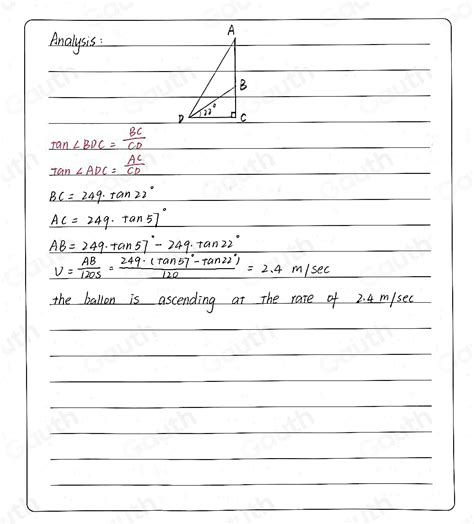 Analysis:
A
B
D
22°
C
Tan∠BDC = BC/CD
Tan∠ADC = AC/CD
BC = 249·tan22°
AC = 249·tan57°
AB = 249·tan57° - 249·tan22°
V = AB/120s = 249·(tan57°-tan22°)/120 = 2.4 m/sec
the ballon is ascending at the rate of 2.4 m/sec